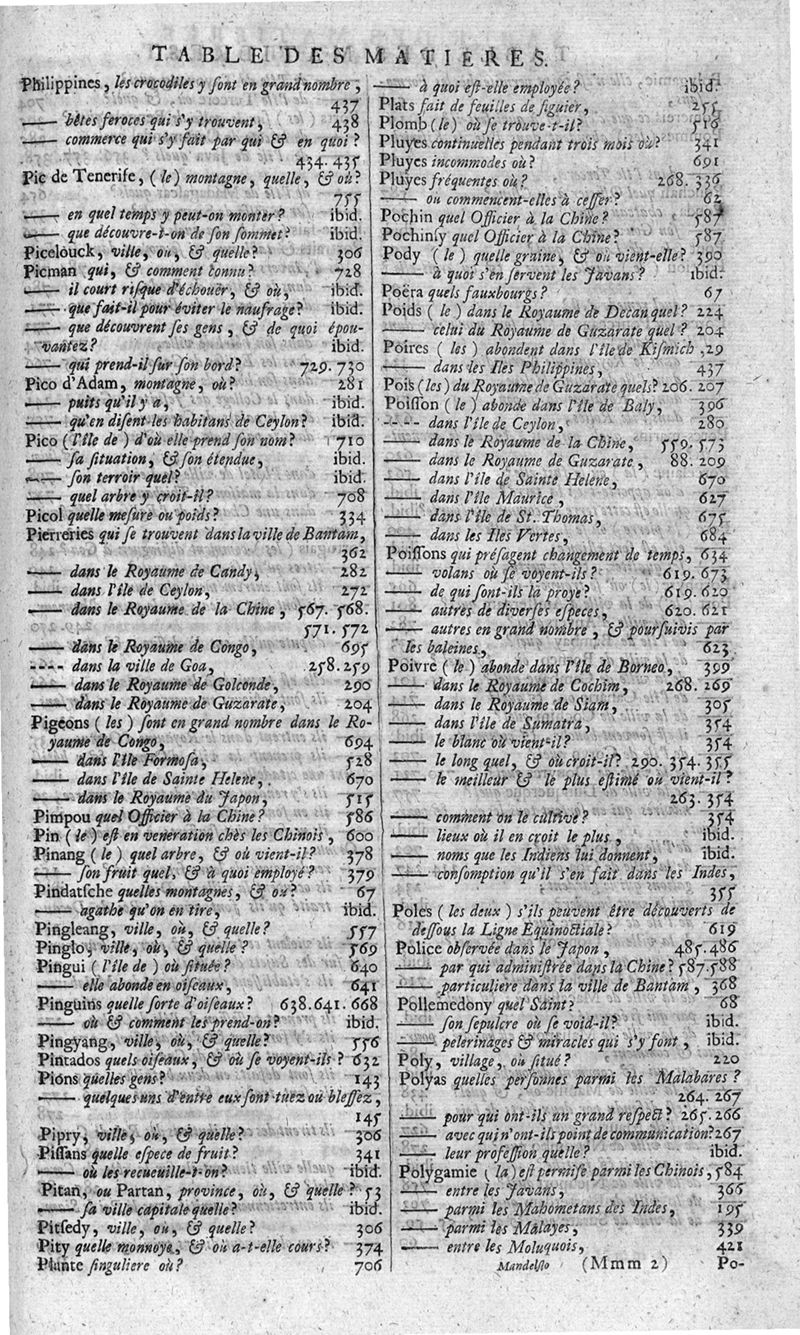 TABLE DES MATIERES.
Philippines, les crocodiles y ſont en grand nombre,
437
—— bêtes feroces qui s'y trouvent, 438
—— commerce qui s'y fait par qui & en quoi?
434. 435
Pic de Tenerife, (le) montagne, quelle, & où?
755
—— en quel temps y peut-on monter? ibid.
—— que découvre-t-on de ſon ſommet? ibid.
Picelouck, ville, où, & quelle? 306
Picman qui, & comment connu? 728
—— il court riſque d'échouër, & où, ibid.
—— que fait-il pour éviter le naufrage? ibid.
—— que découvrent ſes gens, & de quoi épou-
vantez? ibid.
—— qui prend-il ſur ſon bord? 729. 730
Pico d'Adam, montagne, où? 281
—— puits qu'il y a, ibid.
—— qu'en diſent les habitans de Ceylon? ibid.
Pico (l'île de) d'où elle prend ſon nom? 710
—— ſa ſituation, & ſon étendue, ibid.
—— ſon terroir quel? ibid.
—— quel arbre y croit-il? 708
Picol quelle meſure ou poids? 334
Pierreries qui ſe trouvent dans la ville de Bantam,
362
—— dans le Royaume de Candy, 282
—— dans l'île de Ceylon, 272
—— dans le Royaume de la Chine, 567. 568.
571. 572
—— dans le Royaume de Congo, 695
---- dans la ville de Goa, 258. 259
—— dans le Royaume de Golconde, 290
—— dans le Royaume de Guzarate, 204
Pigeons (les) ſont en grand nombre dans le Ro-
yaume de Congo, 694
—— dans l'île Formoſa, 528
—— dans l'île de Sainte Helene, 670
—— dans le Royaume du Japon, 515
Pimpou quel Officier à la Chine? 586
Pin (le) eſt en veneration chès les Chinois, 600
Pinang (le) quel arbre, & où vient-il? 378
—— ſon fruit quel, & à quoi employé? 379
Pindatſche quelles montagnes, & où? 67
—— agathe qu'on en tire, ibid.
Pingleang, ville, où, & quelle? 557
Pinglo, ville, où, & quelle? 569
Pingui (l'île de) où ſituée? 640
—— elle abonde en oiſeaux, 641
Pinguins quelle ſorte d'oiſeaux? 638. 641. 668
—— où & comment les prend-on? ibid.
Pingyang, ville, où, & quelle? 556
Pintados quels oiſeaux, & où ſe voyent-ils? 632
Pions quelles gens? 143
—— quelques uns d'entre eux ſont tuez ou bleſſez,
145
Pipry, ville, où, & quelle? 306
Piſſans quelle eſpece de fruit? 341
—— où les recueuille-t-on? ibid.
Pitan, ou Partan, province, où, & quelle? 53
—— ſa ville capitale quelle? ibid.
Pitſedy, ville, où, & quelle? 306
Pity quelle monnoye, & où a-t-elle cours? 374
Plante ſinguliere où? 706
—— à quoi eſt-elle employée? ibid.
Plats fait de feuilles de figuier, 255
Plomb (le) où ſe trouve-t-il? 516
Pluyes continuelles pendant trois mois où? 341
Pluyes incommodes où? 691
Pluyes fréquentes où? 268. 336
—— ou commencent-elles à ceſſer? 62
Pochin quel Officier à la Chine? 587
Pochinſy quel Officier à la Chine? 587
Pody (le) quelle graine, & où vient-elle? 390
—— à quoi s'en ſervent les Javans? ibid.
Poëra quels fauxbourgs? 67
Poids (le) dans le Royaume de Decan quel? 224
—— celui du Royaume de Guzarate quel? 204
Poires (les) abondent dans l'île de Kiſmich, 29
—— dans les Iles Philippines, 437
Pois (les) du Royaume de Guzarate quels? 206. 207
Poiſſon (le) abonde dans l'île de Baly, 396
---- dans l'île de Ceylon, 280
—— dans le Royaume de la Chine, 559. 573
—— dans le Royaume de Guzarate, 88. 209
—— dans l'île de Sainte Helene, 670
—— dans l'île Maurice, 627
—— dans l'île de St. Thomas, 675
—— dans les Iles Vertes, 684
Poiſſons qui préſagent changement de temps, 634
—— volans où ſe voyent-ils? 619. 673
—— de qui ſont-ils la proye? 619. 620
—— autres de diverſes eſpeces, 620. 621
—— autres en grand nombre, & pourſuivis par
les baleines, 623
Poivre (le) abonde dans l'île de Borneo, 399
—— dans le Royaume de Cochim, 268. 269
—— dans le Royaume de Siam, 305
—— dans l'île de Sumatra, 354
—— le blanc où vient-il? 354
—— le long quel, & où croit-il? 290. 354. 355
—— le meilleur & le plus eſtimé où vient-il?
263. 354
—— comment on le cultive? 354
—— lieux où il en croit le plus, ibid.
—— noms que les Indiens lui donnent, ibid.
—— conſomption qu'il s'en fait dans les Indes,
355
Poles (les deux) s'ils peuvent être découverts de
deſſous la Ligne Equinoctiale? 619
Police obſervée dans le Japon, 485. 486
—— par qui adminiſtrée dans la Chine? 587. 588
—— particuliere dans la ville de Bantam, 368
Pollemedony quel Saint? 68
—— ſon ſepulcre où ſe void-il? ibid.
—— pelerinages & miracles qui s'y font, ibid.
Poly, village, où ſitué? 220
Polyas quelles perſonnes parmi les Malabares?
264. 267
—— pour qui ont-ils un grand reſpect? 265. 266
—— avec qui n'ont-ils point de communication? 267
—— leur profeſſion quelle? ibid.
Polygamie (la) eſt permiſe parmi les Chinois, 584
—— entre les Javans, 366
—— parmi les Mahometans des Indes, 195
—— parmi les Malayes, 339
—— entre les Moluquois, 421
Mandelſlo (Mmm 2) Po-